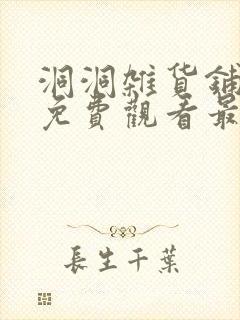 洞洞雜貨鋪
免費觀看最
長生千葉